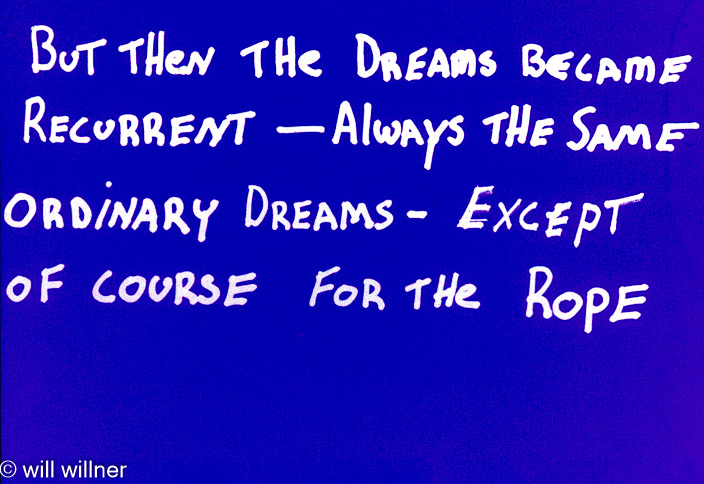 BUT THEN THE DREAMS BECAME
RECURRENT — ALWAYS THE SAME
ORDINARY DREAMS - EXCEPT
OF COURSE FOR THE ROPE
© will willner